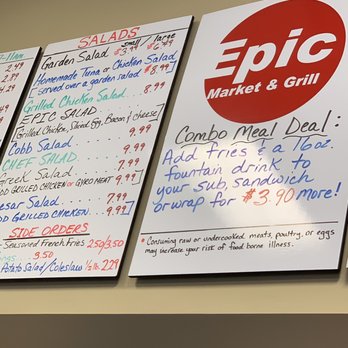 7-11am
2.49
2.39
SALADS
small / large
Garden Salad $3.99 $6.49
Homemade Tuna or Chicken Salad $8.99
[served over a garden salad]
Grilled Chicken Salad
EPIC SALAD
[Grilled Chicken, Sliced Egg, Bacon & cheese]
Cobb Salad 9.99
CHEF SALAD 7.99
Greek Salad 7.99
DD GRILLED CHICKEN or GYRO MEAT 9.99
esar Salad 7.99
DD GRILLED CHICKEN. 9.99
SIDE ORDERS
Seasoned French Fries 2.50/3.50
3.50
Potato Salad/Coleslaw ½ lb. 2.29
Epic
Market & Grill
Combo Meal Deal:
Add fries & a 16oz.
fountain drink to
your sub, sandwich
or wrap for $3.90 more!
* Consuming raw or undercooked meats, poultry, or eggs
may increase your risk of food borne illness.